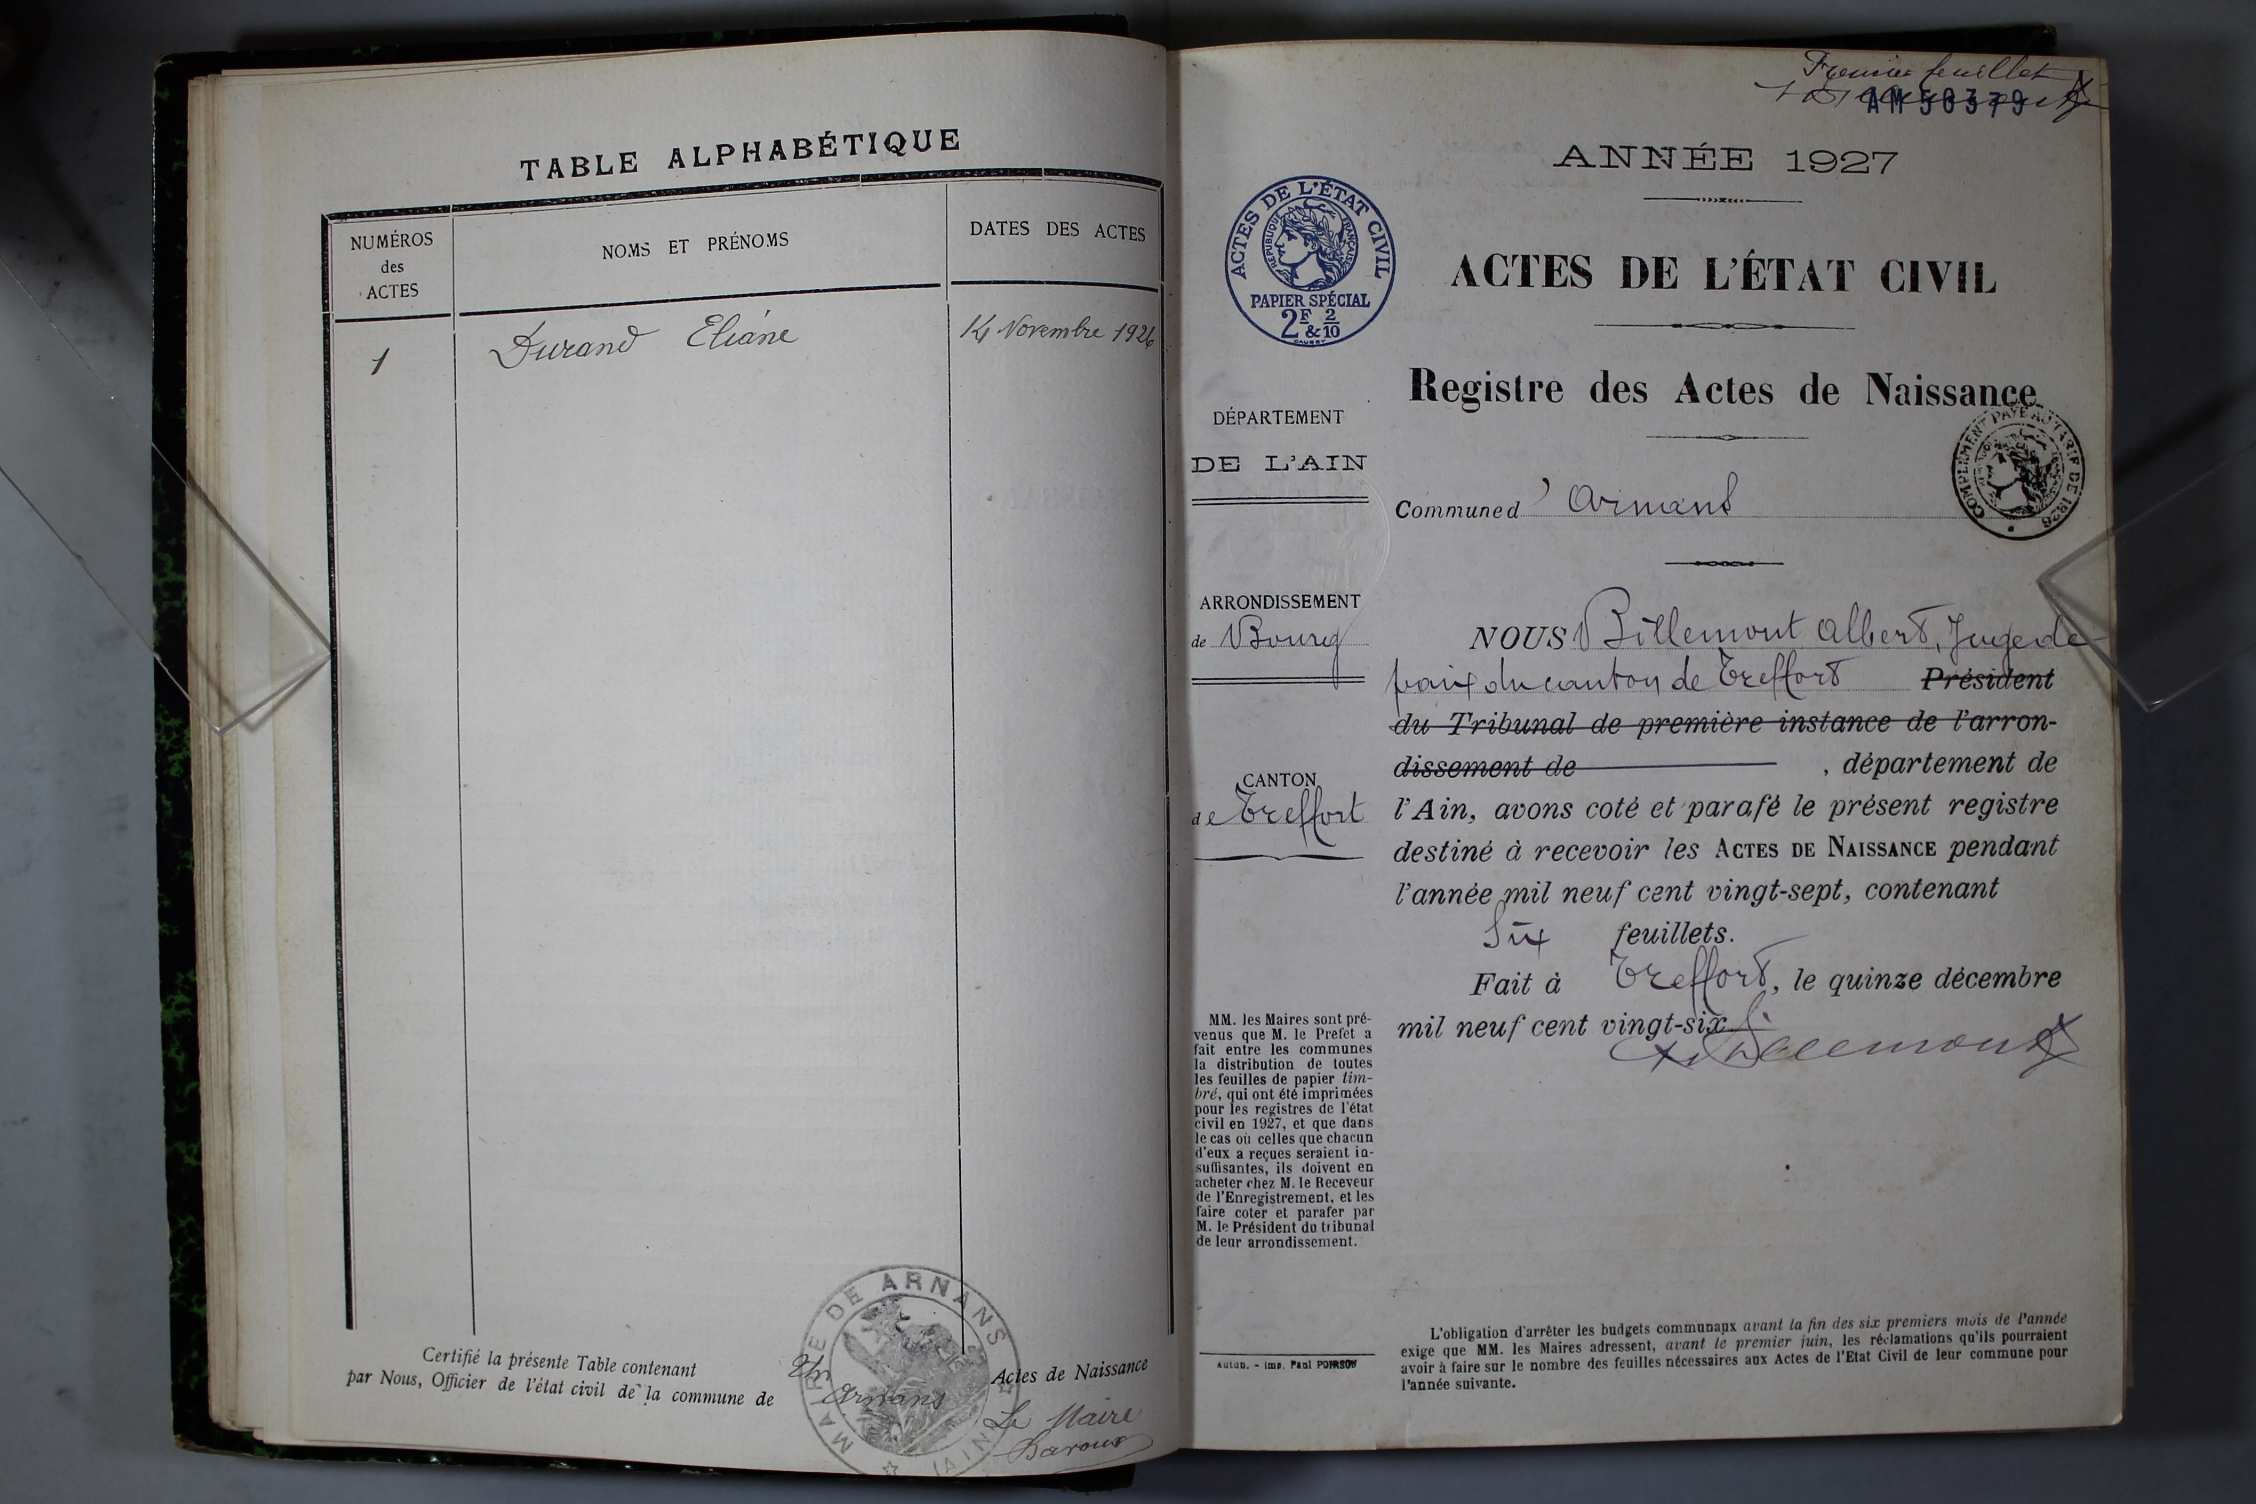 TABLE ALPHABÉTIQUE
NUMÉROS
des
ACTES
NOMS ET PRÉNOMS
DATES DES ACTES
1
Durand Eliane
14 Novembre 1926
Certifié la présente Table contenant
Un
Actes de Naissance
par Nous, Officier de l'état civil de la commune de
Arnans
Le Maire
Baroux
MAIRIE DE ARNANS
(AIN)
Premier feuillet
AM 50379
ANNÉE 1927
ACTES DE L'ÉTAT CIVIL
RÉPUBLIQUE FRANÇAISE
PAPIER SPÉCIAL
2F & 2/10
ACTES DE L'ÉTAT CIVIL
Registre des Actes de Naissance
COMPLÉMENT PAYÉ AU TARIF DE 1926
DÉPARTEMENT
DE L'AIN
ARRONDISSEMENT
de Bourg
CANTON
de Treffort
MM. les Maires sont pré-
venus que M. le Prefet a
fait entre les communes
la distribution de toutes
les feuilles de papier tim-
bré, qui ont été imprimées
pour les registres de l'état
civil en 1927, et que dans
le cas où celles que chacun
d'eux a reçues seraient in-
suffisantes, ils doivent en
acheter chez M. le Receveur
de l'Enregistrement, et les
faire coter et parafer par
M. le Président du tribunal
de leur arrondissement.
Autun. - Imp. Paul POIRSON
Commune d'Arnans
NOUS Billemont Albert, Juge de
paix du canton de Treffort Président
du Tribunal de première instance de l'arron-
dissement de , département de
l'Ain, avons coté et parafé le présent registre
destiné à recevoir les ACTES DE NAISSANCE pendant
l'année mil neuf cent vingt-sept, contenant
Six feuillets.
Fait à Treffort, le quinze décembre
mil neuf cent vingt-six
Billemont
L'obligation d'arrêter les budgets communaux avant la fin des six premiers mois de l'année
exige que MM. les Maires adressent, avant le premier juin, les réclamations qu'ils pourraient
avoir à faire sur le nombre des feuilles nécessaires aux Actes de l'Etat Civil de leur commune pour
l'année suivante.